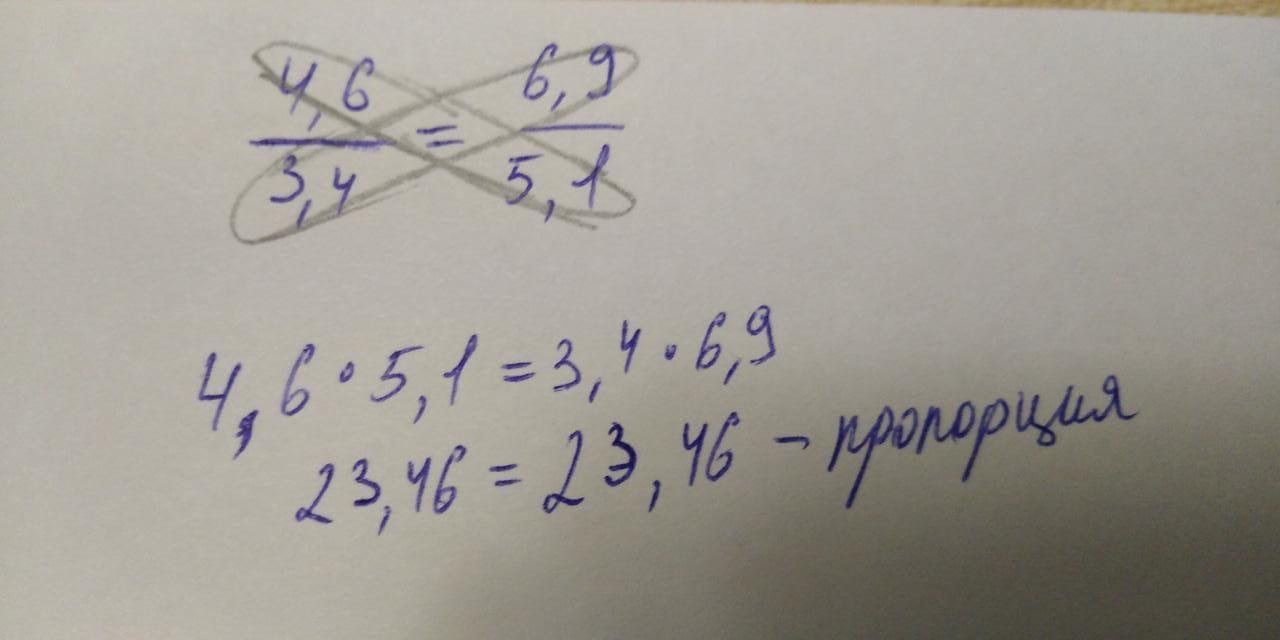 4,6/3,4 = 6,9/5,1
4,6 · 5,1 = 3,4 · 6,9
23,46 = 23,46 – пропорция